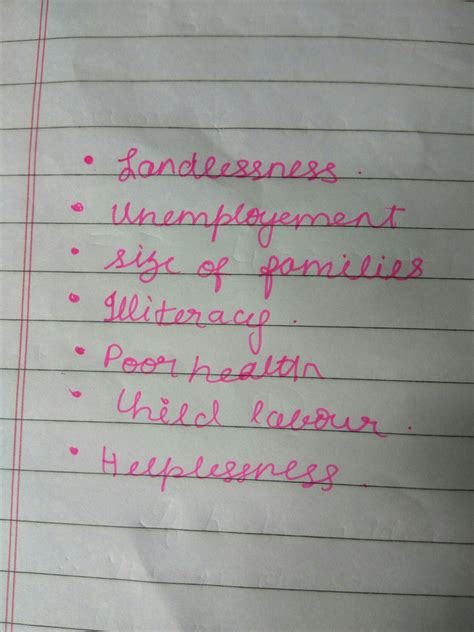 • Landlessness.
• Unemployement
• size of families
• Illiteracy.
• Poor health
• Child labour.
• Helplessness.